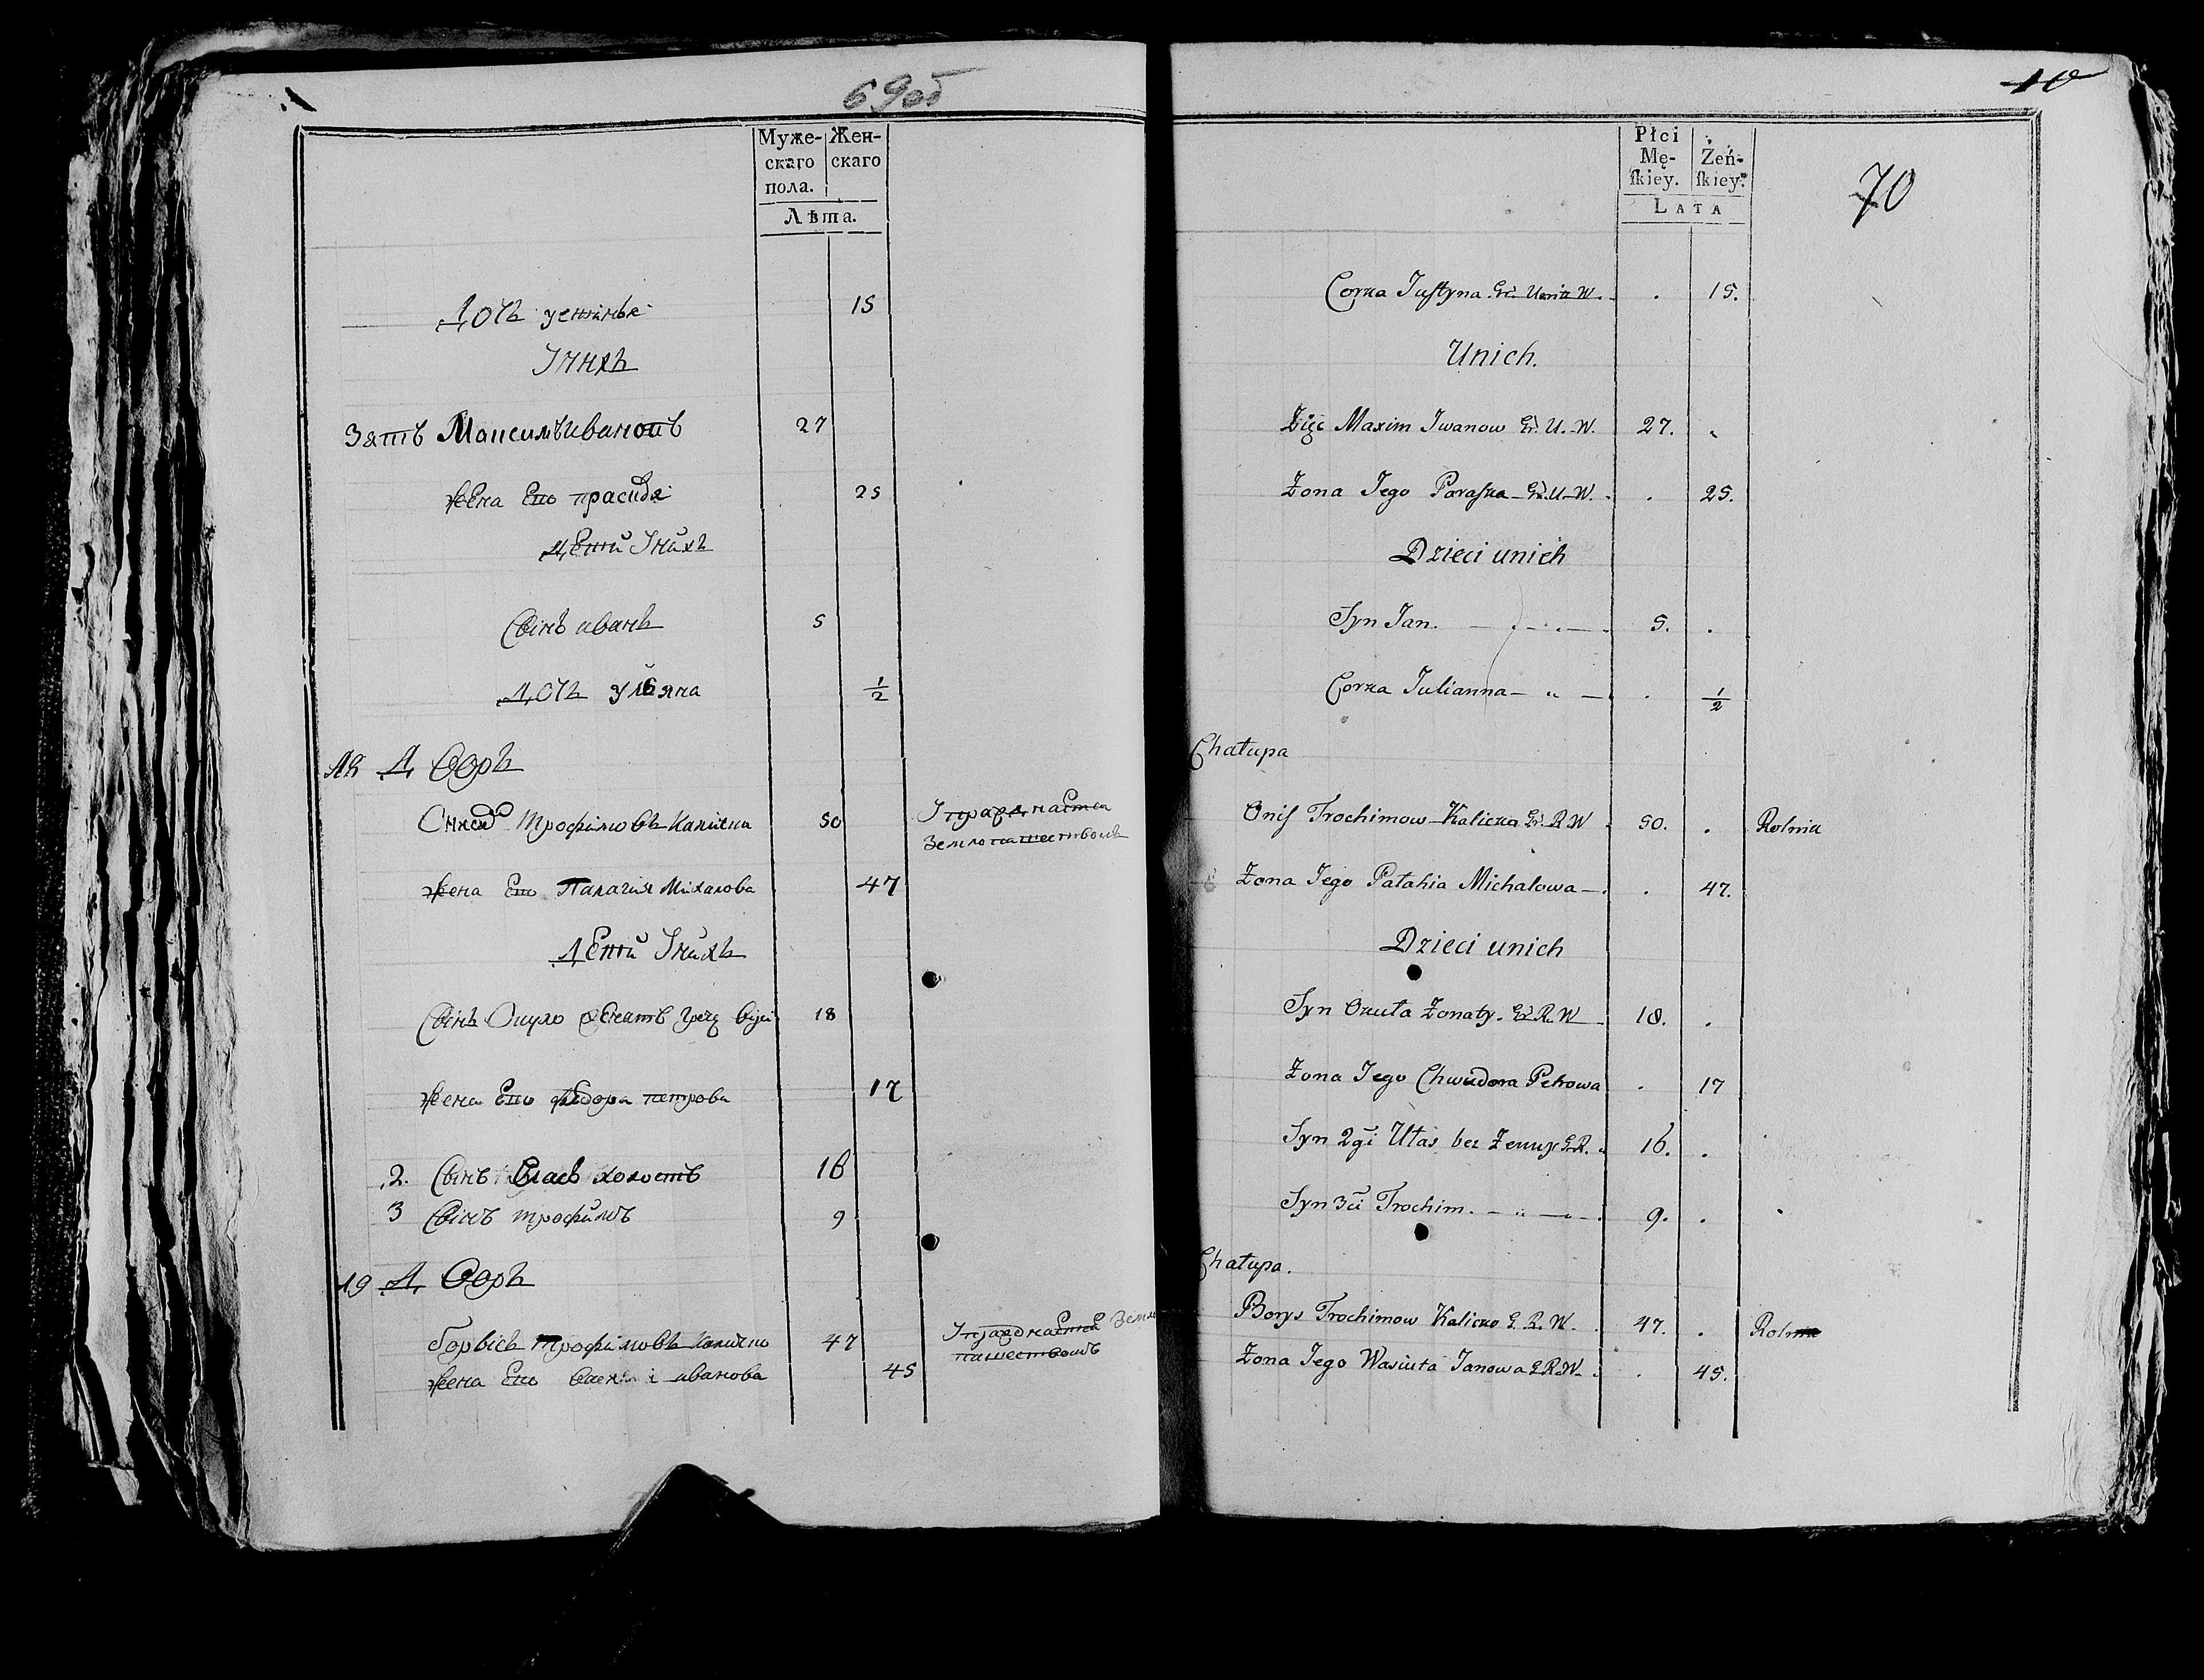 69об
Муже-
скаго
пола.
Жен-
скаго
Лѣта.
Дочь устинья 15
У нихъ
Зять Максимъ ивановъ 27
жена Его прасидя 25
Дети У нихъ
Сынъ иванъ 5
Дочь ульяна 1/2
18 Дворъ
трофимовъ Каличка 50 Упражнается
землопашествомъ
жена Его Палагия Михалова 47
Дети У нихъ
Сынъ Окуло женатъ 18
жена Его федора петрова 17
2. Сынъ Власъ холостъ 16
3 Сынъ трофимъ 9
19 Дворъ
Борысъ трофимовъ Каличко 47 Упражнается Земло
пашествомъ
жена Его иванова 45
10
Płci
Mę-
skiey.
Żeń-
skiey.
LATA
70
Corka Justyna Gr. Unitk W. 15.
U nich.
Zięć Maxim Iwanow Gr. U. W. 27.
Żona Jego Paraska Gr. U. W. 25.
Dzieci u nich
Syn Jan. 5.
Corka Julianna 1/2
Chałupa
Onis Trochimow Kaliczka Gr. R W 50. Rolnik
Żona Jego Pałahia Michalowa 47.
Dzieci u nich
Syn Okuła Żonaty. Gr. R. W 18.
Żona Jego Chwedora Petrowa 17
Syn 2gi Ułas bez Żenny G. R. 16.
Syn 3ci Trochim. 9.
Chałupa.
Borys Trochimow Kaliczko G. R. W. 47. Rolnik
Żona Jego Wasiuta Janowa G R W 45.